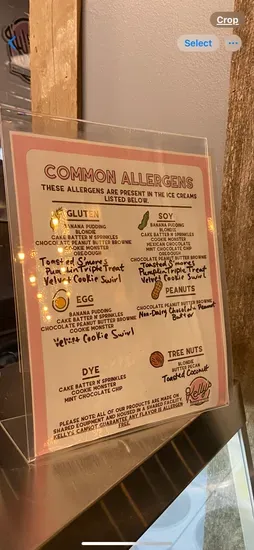 Crop
Select
COMMON ALLERGENS
THESE ALLERGENS ARE PRESENT IN THE ICE CREAMS
LISTED BELOW.
GLUTEN
BANANA PUDDING
BLONDIE
CAKE BATTER N' SPRINKLES
CHOCOLATE PEANUT BUTTER BROWNIE
COOKIE MONSTER
OREODOUGH
Toasted S'mores
Pumpkin Triple Treat
Velvet Cookie Swirl
SOY
BANANA PUDDING
BLONDIE
CAKE BATTER N' SPRINKLES
COOKIE MONSTER
MEXICAN CHOCOLATE
MINT CHOCOLATE CHIP
OREODOUGH
CHOCOLATE PEANUT BUTTER BROWNIE
Toasted S'mores
Pumpkin Triple Treat
Velvet Cookie Swirl
EGG
BANANA PUDDING
CAKE BATTER N' SPRINKLES
CHOCOLATE PEANUT BUTTER BROWNIE
COOKIE MONSTER
Velvet Cookie Swirl
PEANUTS
CHOCOLATE PEANUT BUTTER BROWNIE
Non-Dairy Chocolate Peanut
Butter
DYE
CAKE BATTER N' SPRINKLES
COOKIE MONSTER
MINT CHOCOLATE CHIP
TREE NUTS
BLONDIE
BUTTER PECAN
Toasted Coconut
Kelly's
PLEASE NOTE: ALL OF OUR PRODUCTS ARE MADE ON
SHARED EQUIPMENT AND HOUSED IN A SHARED FACILITY.
KELLY'S CANNOT GUARANTEE ANY FLAVOR IS ALLERGEN
FREE.